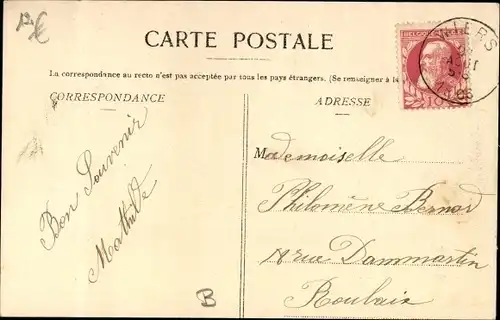 12€
CARTE POSTALE
La correspondance au recto n'est pas acceptée par tous les pays étrangers. (Se renseigner à la
CORRESPONDANCE
ADRESSE
Bon Souvenir
Mathilde
Mademoiselle
Philomène Bernard
rue Dammartin
Roubaix
B
10